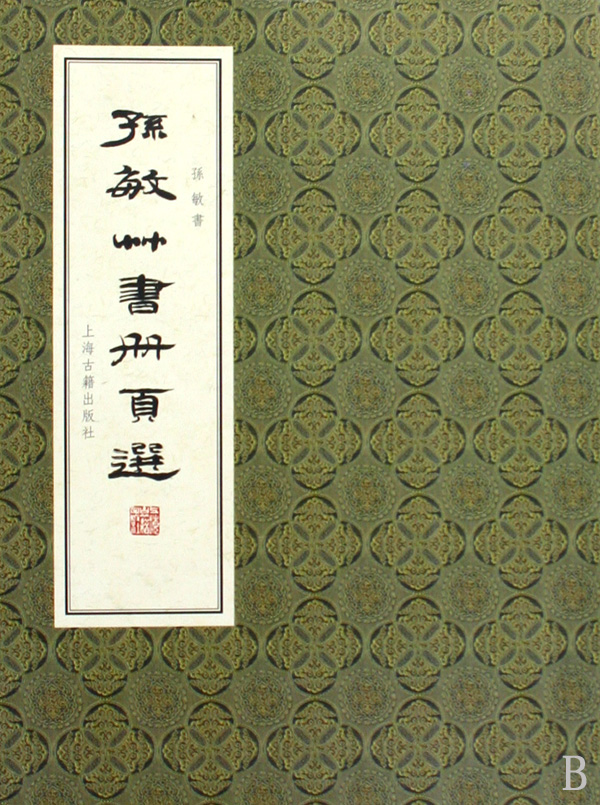 孫敏書
孫敏艸書册頁選
上海古籍出版社
B